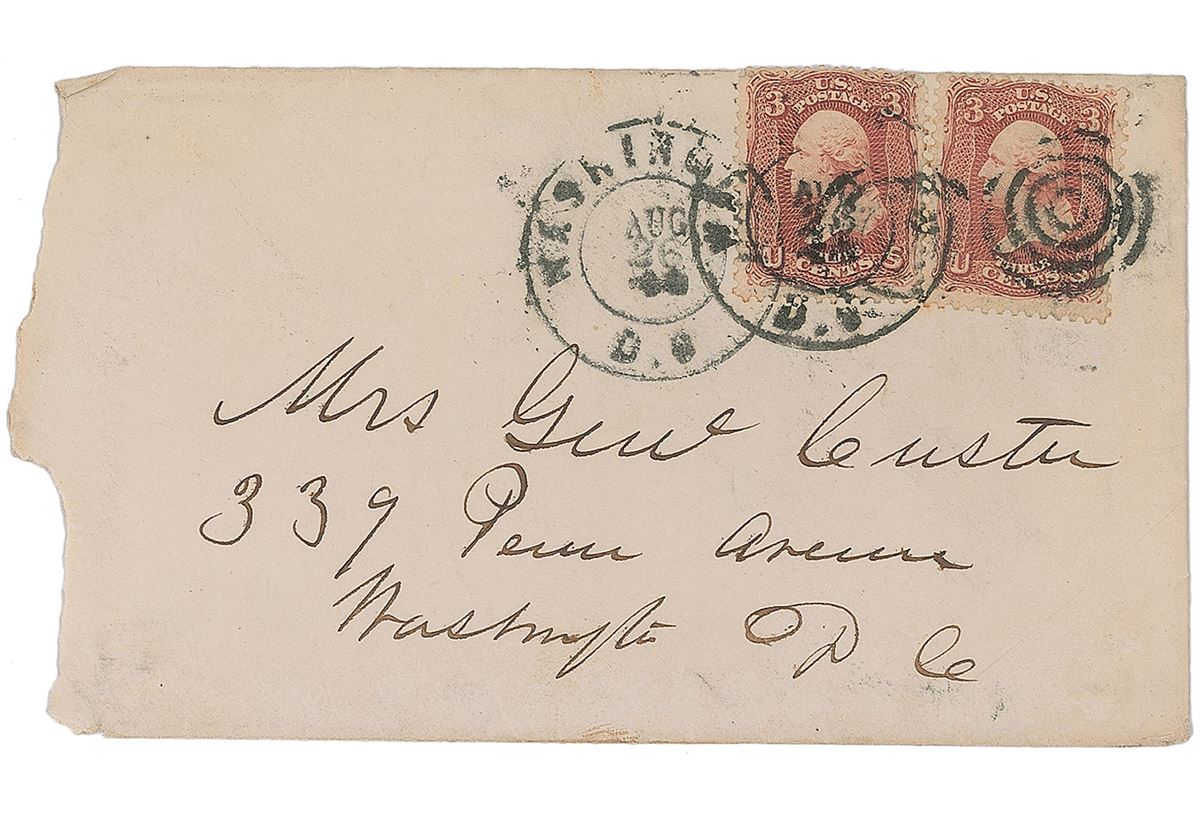 3 U.S. POSTAGE 3
THREE CENTS
U S
3 U.S. POSTAGE 3
THREE CENTS
U S
WASHINGTON
AUG
26
D.C
D.C
Mrs Genl Custer
339 Penn Avenue
Washington D C